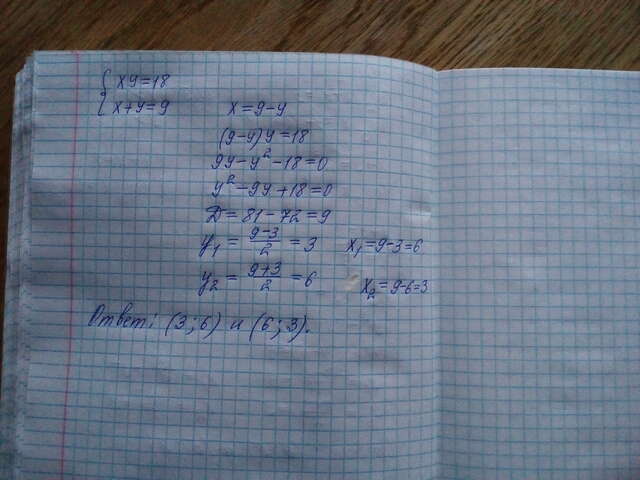 { xy=18
x+y=9 x=9-y
(9-y)y=18
9y-y²-18=0
y²-9y+18=0
D=81-72=9
y₁ = (9-3)/2 = 3 x₁=9-3=6
y₂ = (9+3)/2 = 6 x₂=9-6=3
Ответ: (3;6) и (6;3).